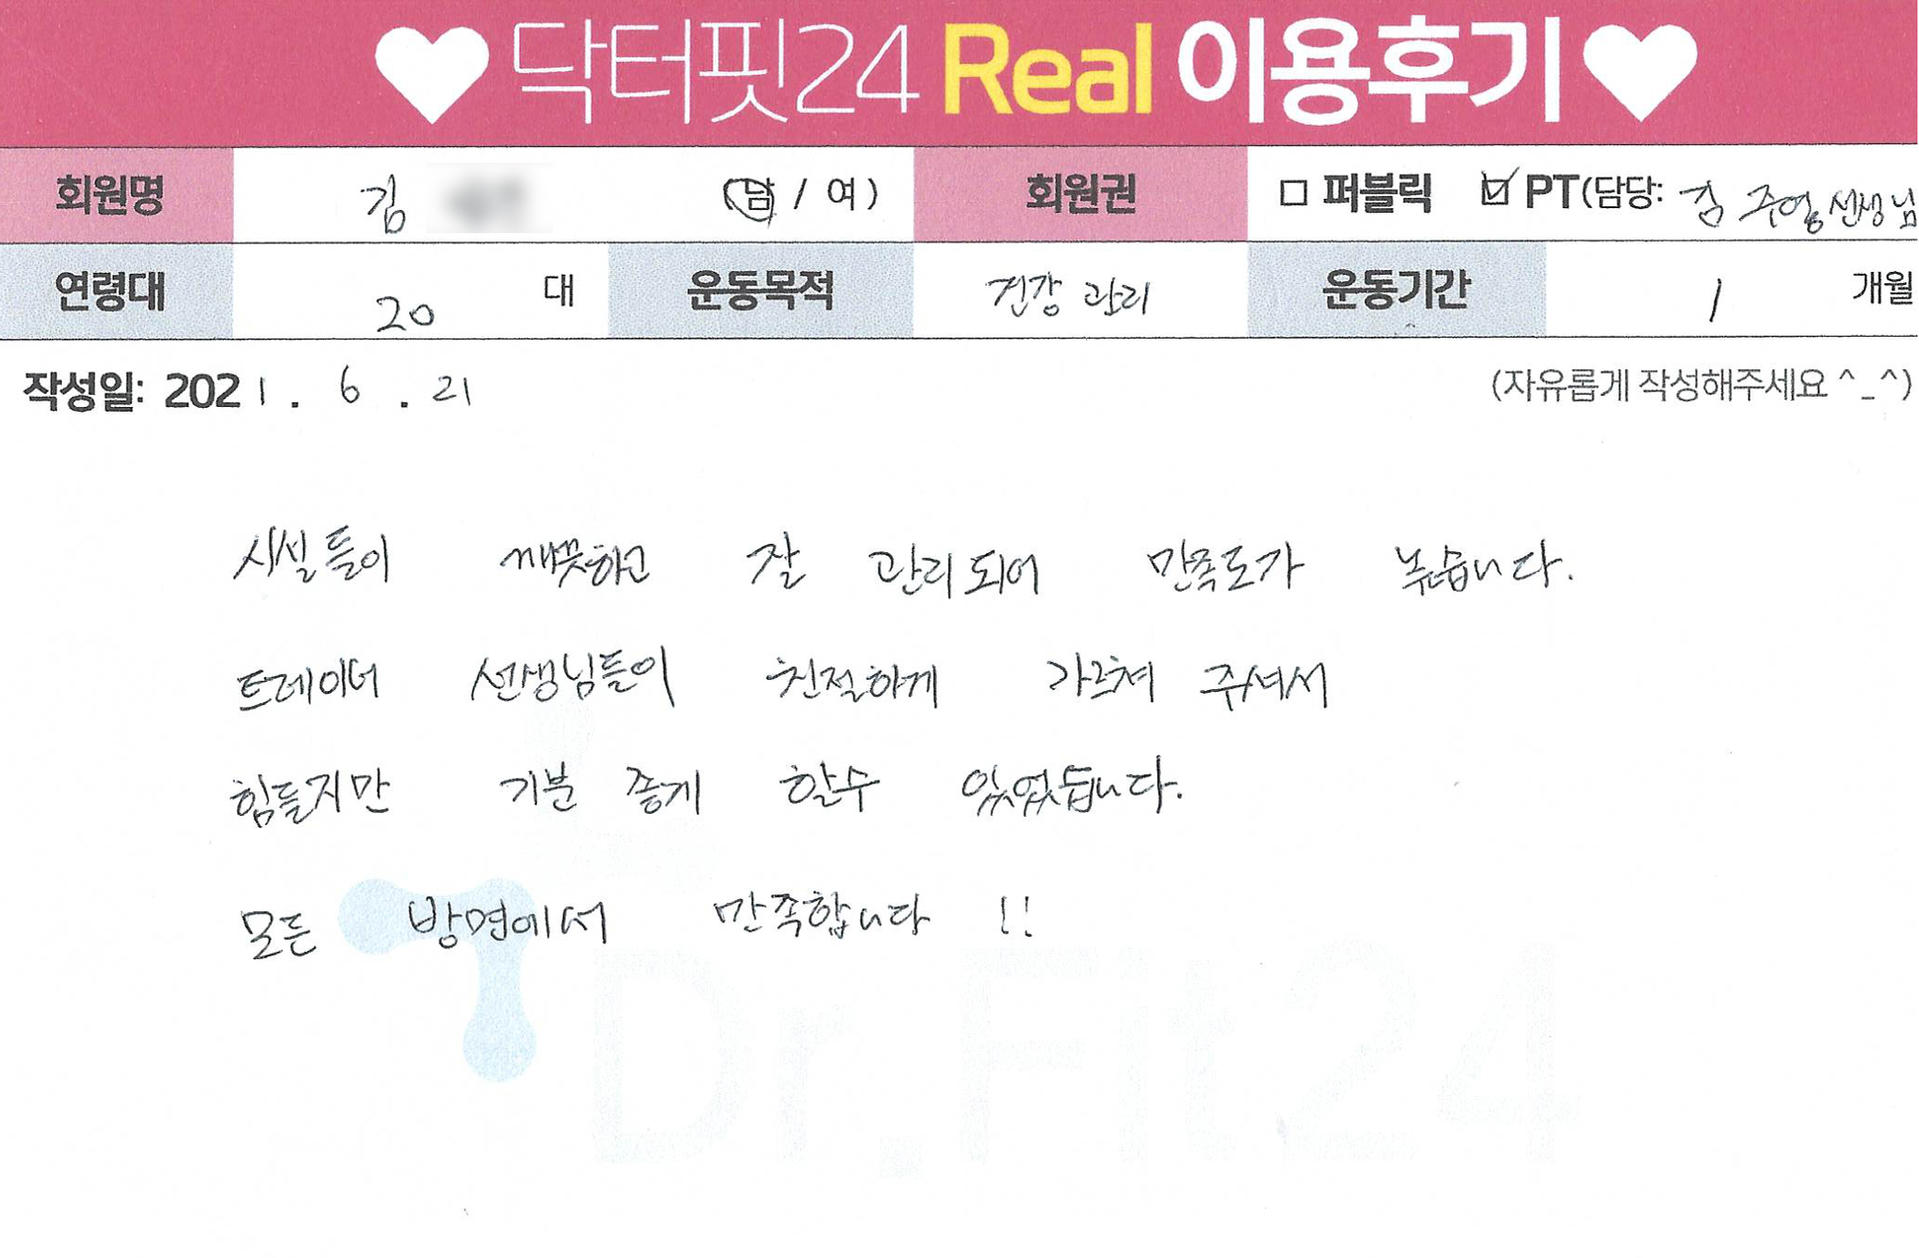 닥터핏24 Real 이용후기
회원명 김 (남 / 여) 회원권 □ 퍼블릭 ☑ PT(담당: 김 주영 선생님
연령대 20 대 운동목적 건강 관리 운동기간 1 개월
작성일: 2021. 6 . 21 (자유롭게 작성해주세요 ^_^)
시설들이 깨끗하고 잘 관리되어 만족도가 높습니다.
트레이너 선생님들이 친절하게 가르쳐 주셔서
힘들지만 기분 좋게 할수 있었습니다.
모든 방면에서 만족합니다 !!
Dr.Fit24